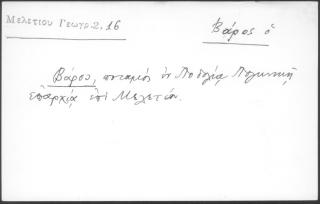 Μελετίου Γεωγρ. 2, 16
Βάρος ὁ
Βάρος, ποταμὸς ἐν Ποδολίᾳ Πολωνικῇ
ἐπαρχίᾳ ἐπὶ Μελετίου.